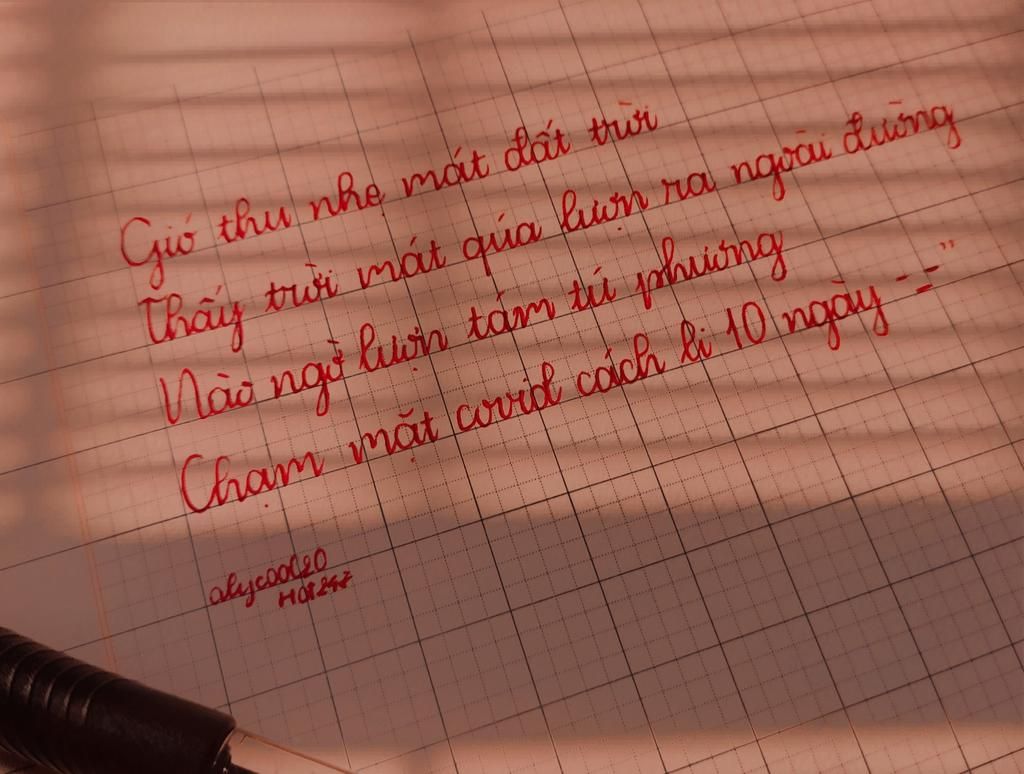 Gió thu nhẹ mát đất trời
Thấy trời mát qúa lượn ra ngoài đường
Nào ngờ lượn tám tứ phương
Chạm mặt covid cách li 10 ngày -_-"
alycool20
H01247